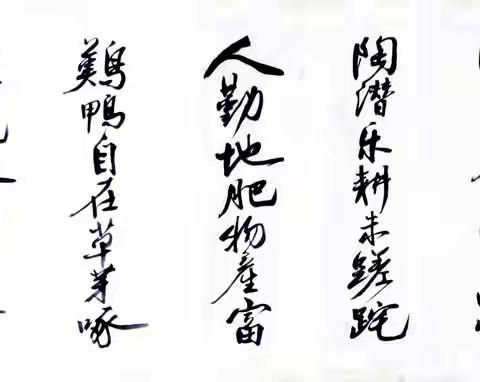 陶潜乐耕未蹉跎
人勤地肥物産富
鷄鴨自在草芽啄